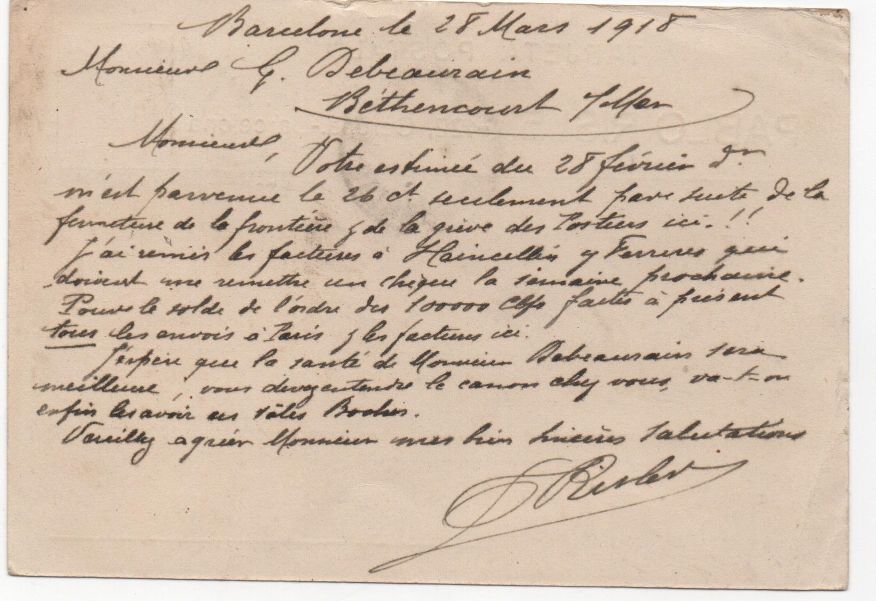 Barcelone le 28 Mars 1918
Monsieur G. Debeaurain
Béthencourt s/Mer
Monsieur,
Votre estimée du 28 février dr
m'est parvenue le 26 ct seulement par suite de la
fermeture de la frontière y de la grève des Postiers ici.!!
J'ai remis les factures à Haincellin y Ferreres qui
doivent me remettre un chèque la semaine prochaine.
Pour le solde de l'ordre des 100000 faites à présent
tous les envois à Paris y les factures ici.
J'espère que la santé de Monsieur Debeaurain sera
meilleure, vous devez entendre le canon chez vous, va-t-on
enfin les avoir ces sales Boches.
Veuillez agréer Monsieur mes bien sincères salutations